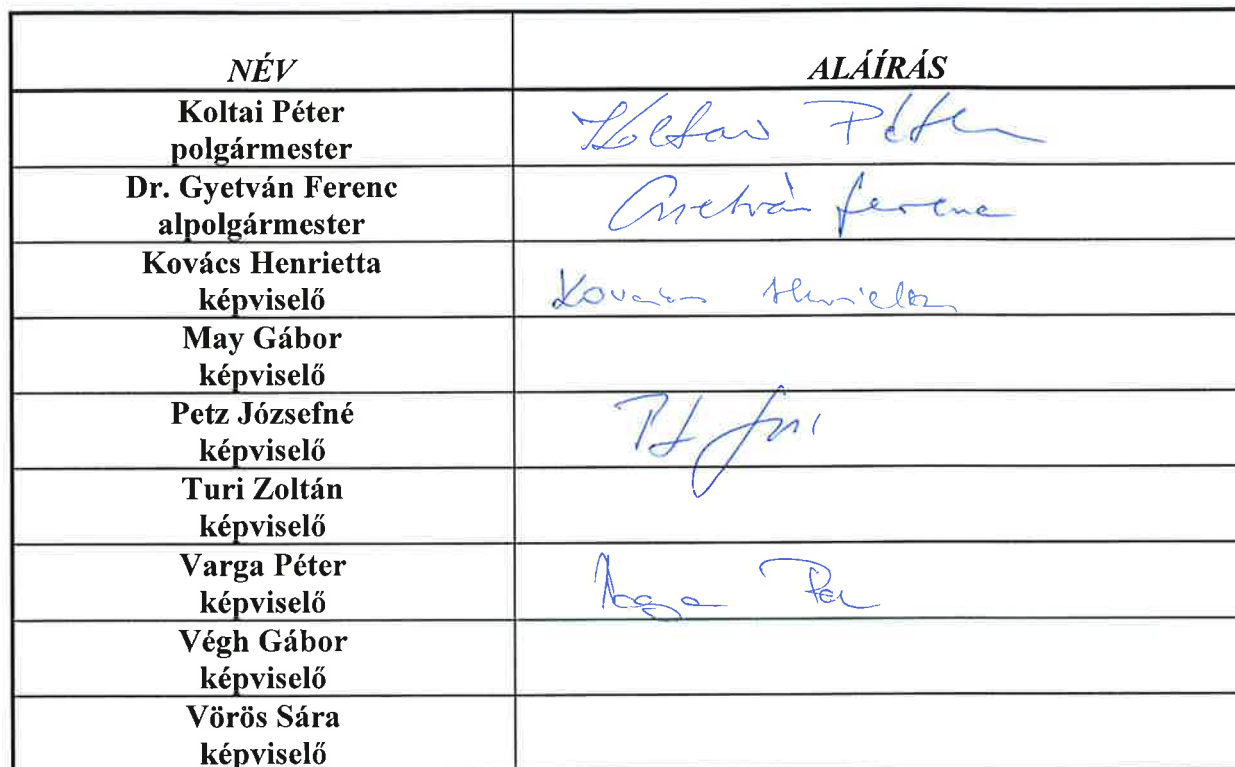 NÉV ALÁÍRÁS
Koltai Péter
polgármester
Koltai Péter
Dr. Gyetván Ferenc
alpolgármester
Gyetván Ferenc
Kovács Henrietta
képviselő
Kovács Henrietta
May Gábor
képviselő
Petz Józsefné
képviselő
Turi Zoltán
képviselő
Varga Péter
képviselő
Varga Péter
Végh Gábor
képviselő
Vörös Sára
képviselő